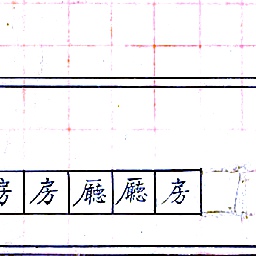 房房廳廳房